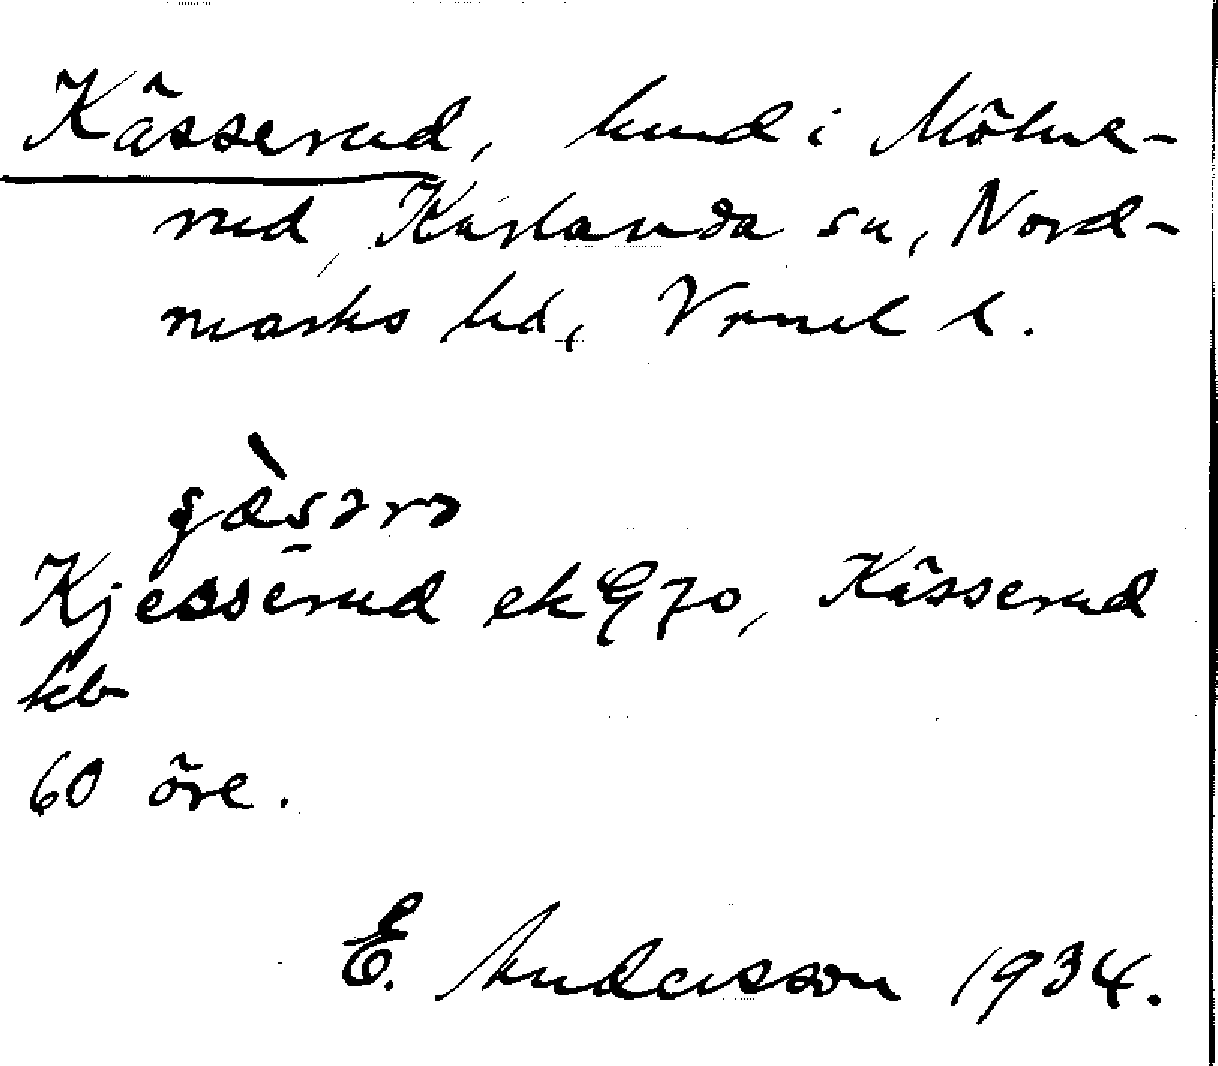 Kässerud, hmd i Mölne-
rud, Karlanda sn, Nord-
marks hd, Vrml l.
Kjesserud ek 970, Kässerud
kb
60 öre.
E. Andersson 1934.